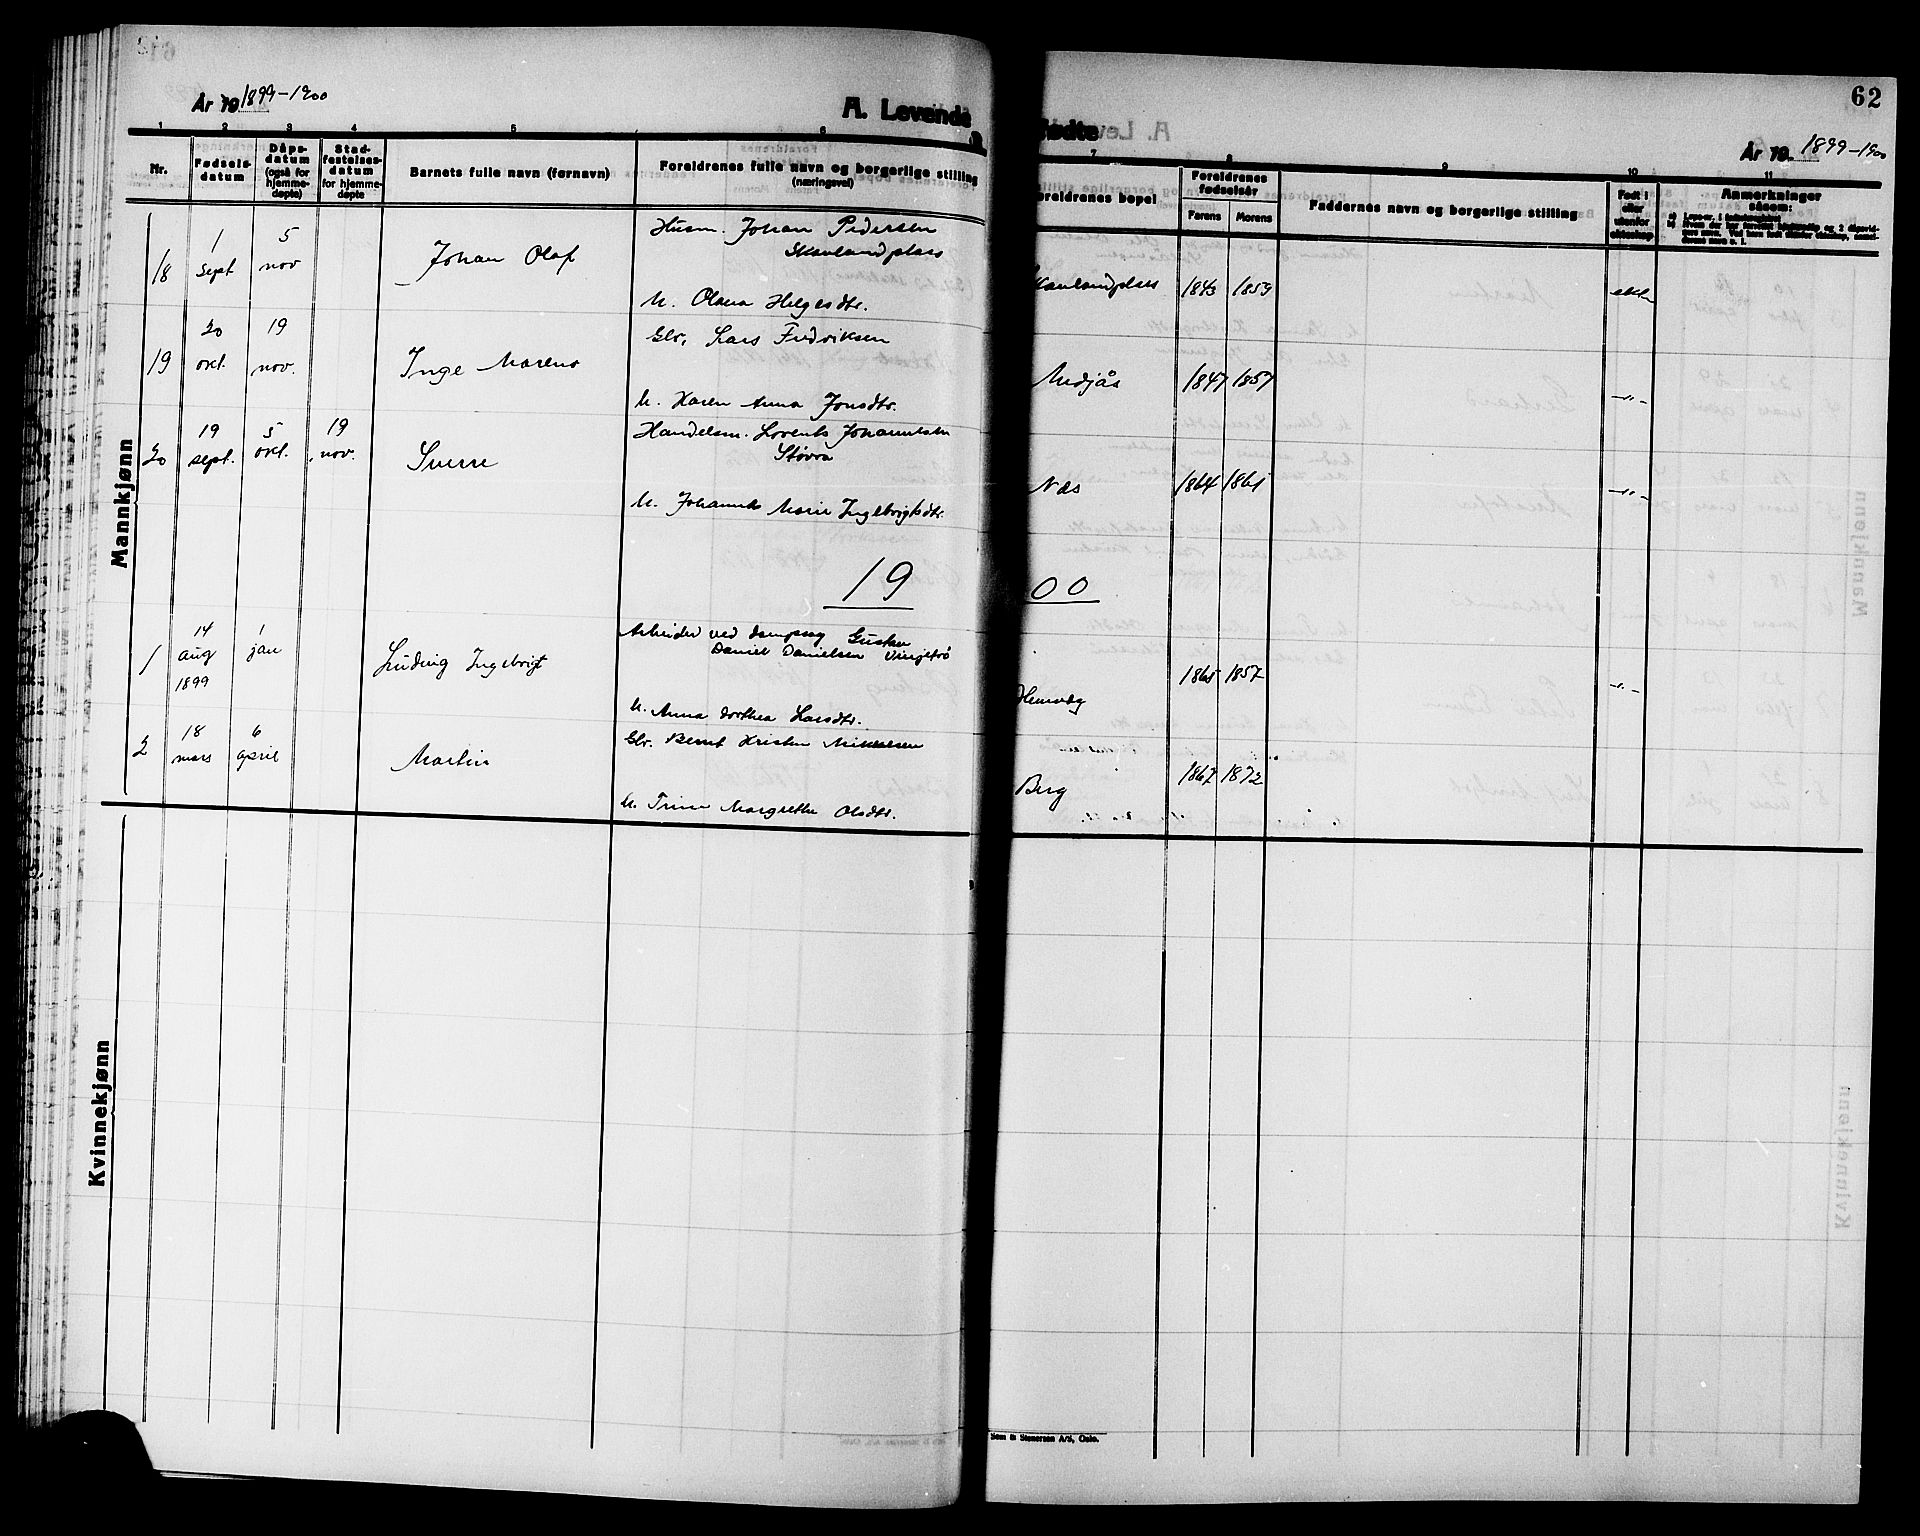 År 19 1899-1900
A. Levende
fødte
62
År 19 1899-1900
1 2 3 4 5 6 7 8 9 10 11
Nr.
Fødsels-
datum
Dåps-
datum
(også for
hjemme-
døpte)
Stad-
festelses-
datum
for hjemme-
døpte
Barnets fulle navn (førnavn)
Foreldrenes fulle navn og borgerlige stilling
(næringsvei)
Foreldrenes bopel
Foreldrenes
fødselsår
Farens
Morens
Faddernes navn og borgerlige stilling
Født i
eller
utenfor
ekteskap
Anmerkninger
såsom:
Mannkjønn
18
1
sept
5
nov
Johan Olaf
Husm. Johan Pedersen
Skanlandplass
h. Olava Helgesdtr.
1843 1859
ekte
19
20
okt.
19
nov.
Inge Marenus
Gbr. Lars Fredriksen
h. Karen Anna Jonsdtr.
Medjås
1847 1857
-"-
20
19
sept.
5
okt.
19
nov.
Sverre
Handelsm. Lorents Johannesen
Støvra
h. Johannes Marie Ingebrigtsdtr.
Næs
1864 1861
-"-
1900
1
14
aug
1899
1
jan
Ludvig Ingebrigt
Arbeider ved dampsag Gustav
Daniel Danielsen Vingetrø
h. Anna Dorthea Larsdtr.
Hemvåg
1865 1857
-"-
2
18
mars
6
april
Martin
Gbr. Bernt Kristen Mikkelsen
h. Trine Margrethe Olsdtr.
Berg
1867 1872
Kvinnekjønn
Sem & Stenersen A/S, Oslo.